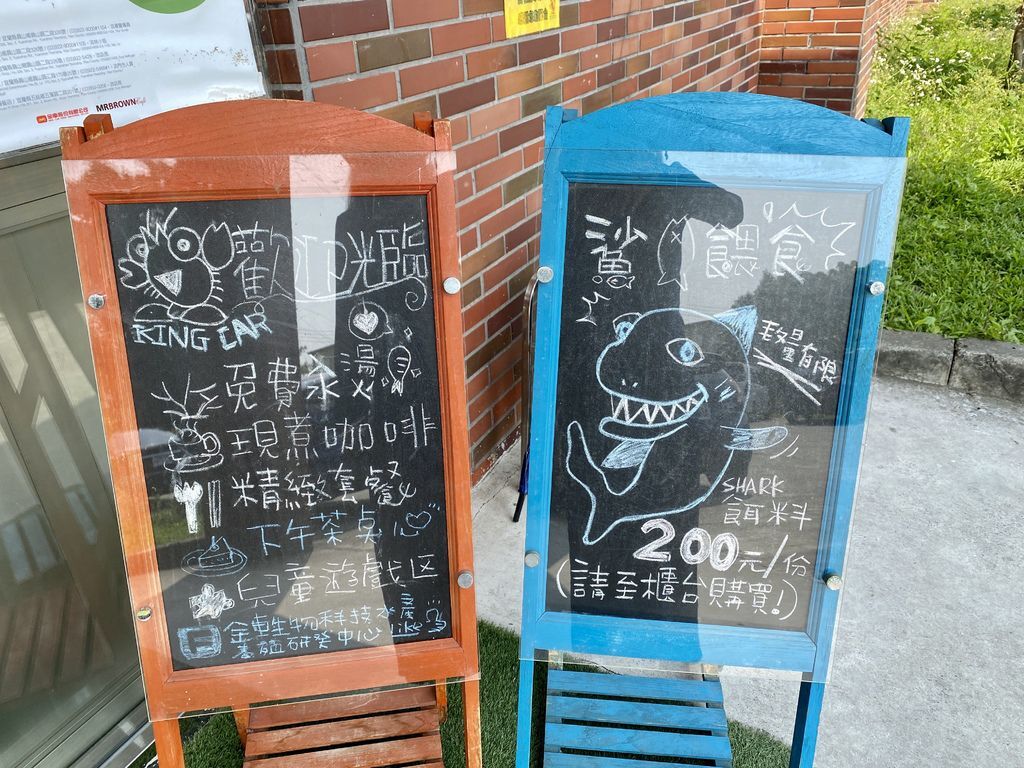 MR.BROWN Café
歡迎光臨
KING CAR
免費魚湯
現煮咖啡
精緻套餐
下午茶桌心
兒童遊戲区
金車生物科技水產
養殖研發中心
like
鯊魚餵食
數量有限
SHARK
飼料
200元/份
(請至櫃台購買!)